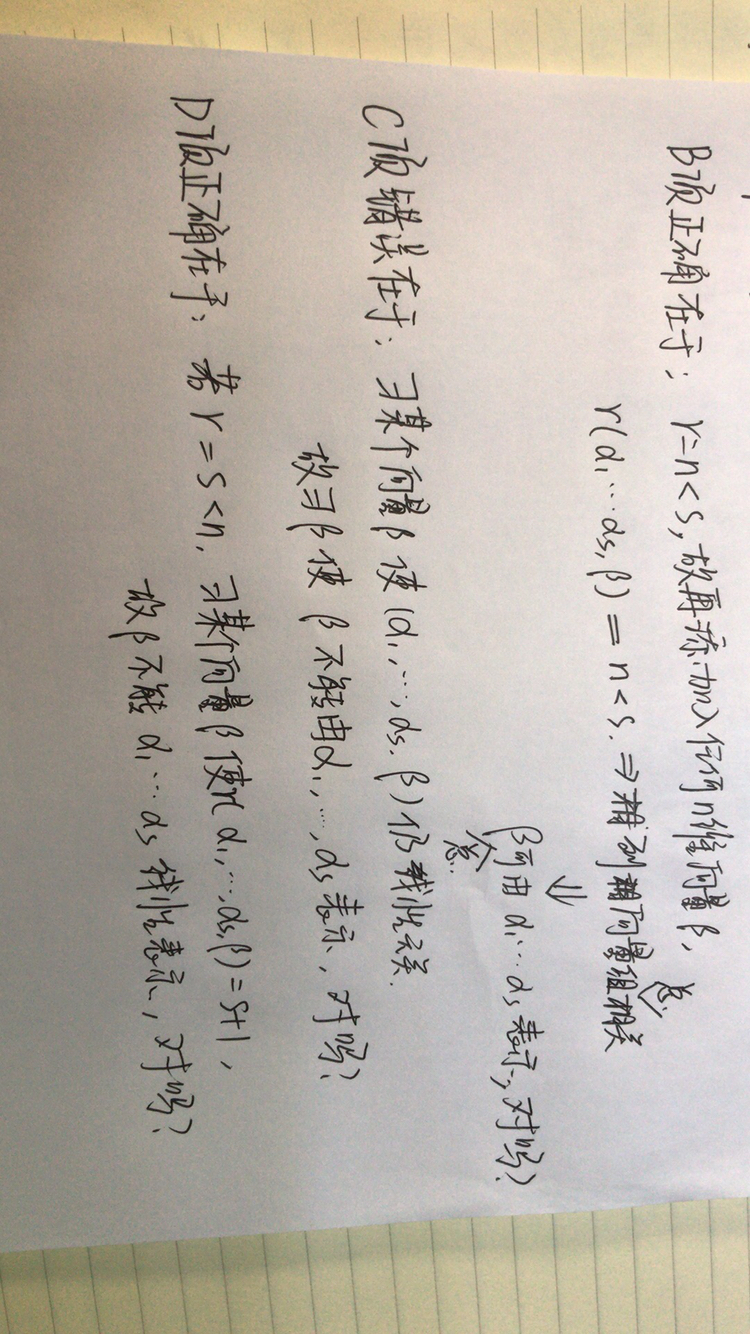 B项正确在于：r=n<s，故再添加入任何n维向量β，
r(α₁…αs,β)=n<s. ⇒ 相关
总
向量组相关
⇓
β可由α₁…αs表示，对吗？
总
C项错误在于：∃某个向量β使(α₁,…,αs,β)仍线性无关.
故∃β使β不能由α₁,…,αs表示，对吗？
D项正确在于：若r=s<n，∃某个向量β使r(α₁,…,αs,β)=s+1，
故β不能α₁…αs线性表示，对吗？